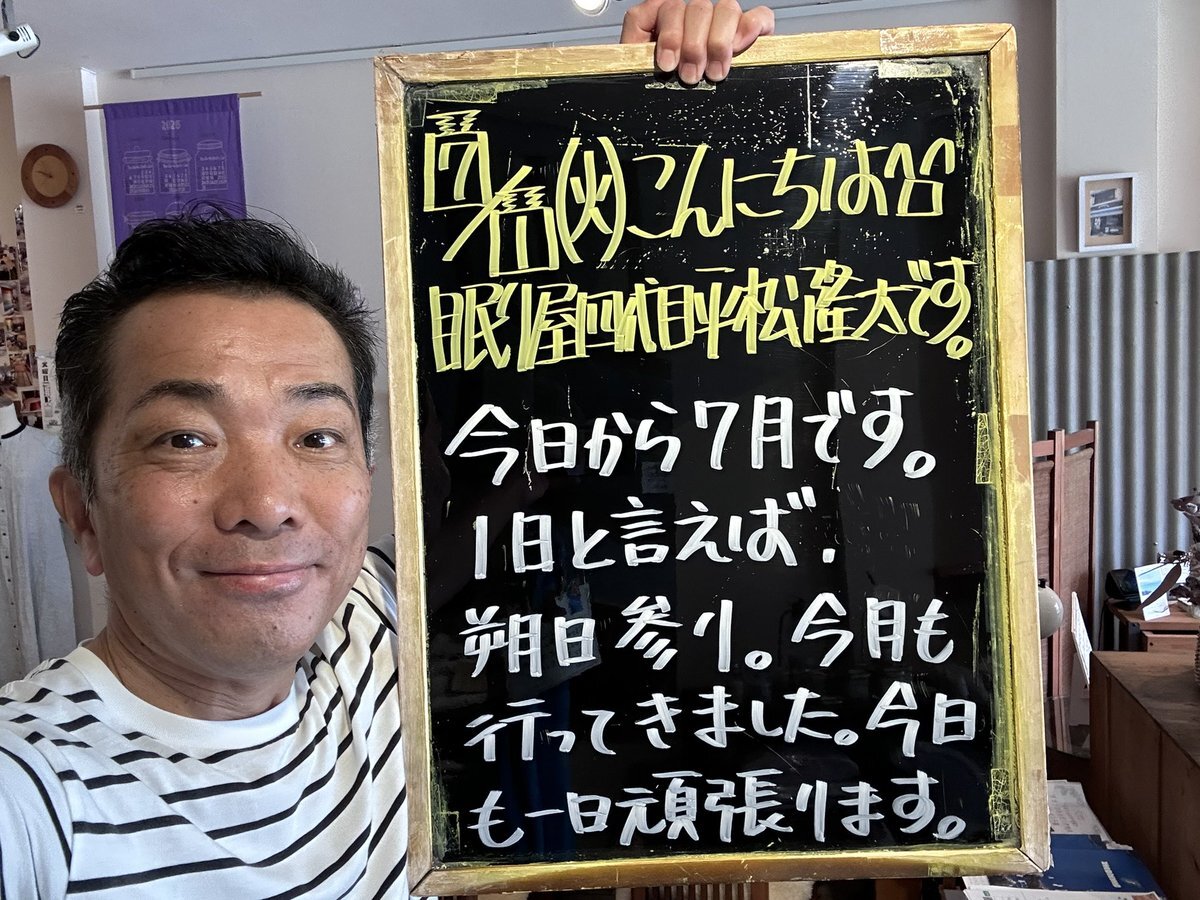 2025
7/1(火)こんにちは^^
眠り屋四代目平松隆太です。
今日から7月です。
1日と言えば、
朔日参り。今月も
行ってきました。今日
も一日頑張ります。